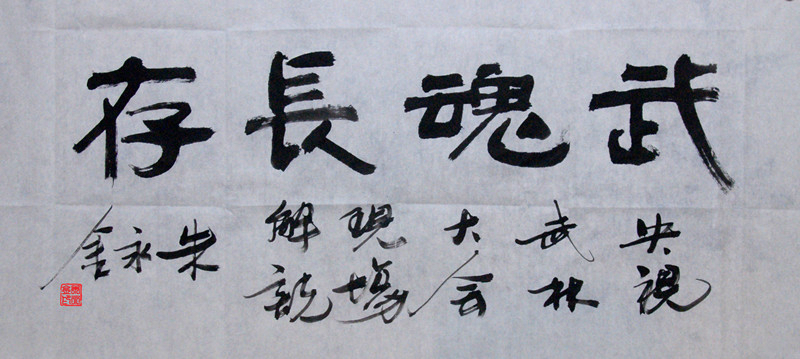 武魂長存
央視
武林
大会
現場
解說
朱永